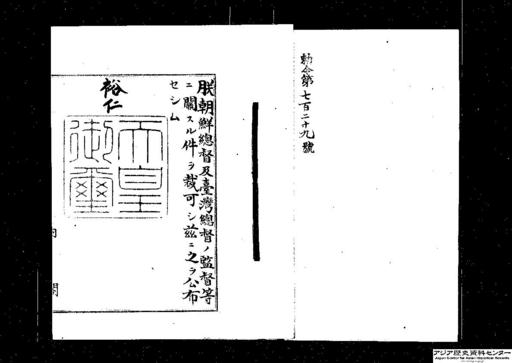 勅令第七百二十九號
朕朝鮮總督及臺灣總督ノ監督等
ニ關スル件ヲ裁可シ茲ニ之ヲ公布
セシム
裕仁
天皇
御璽
内閣
アジア歴史資料センター
Japan Center for Asian Historical Records